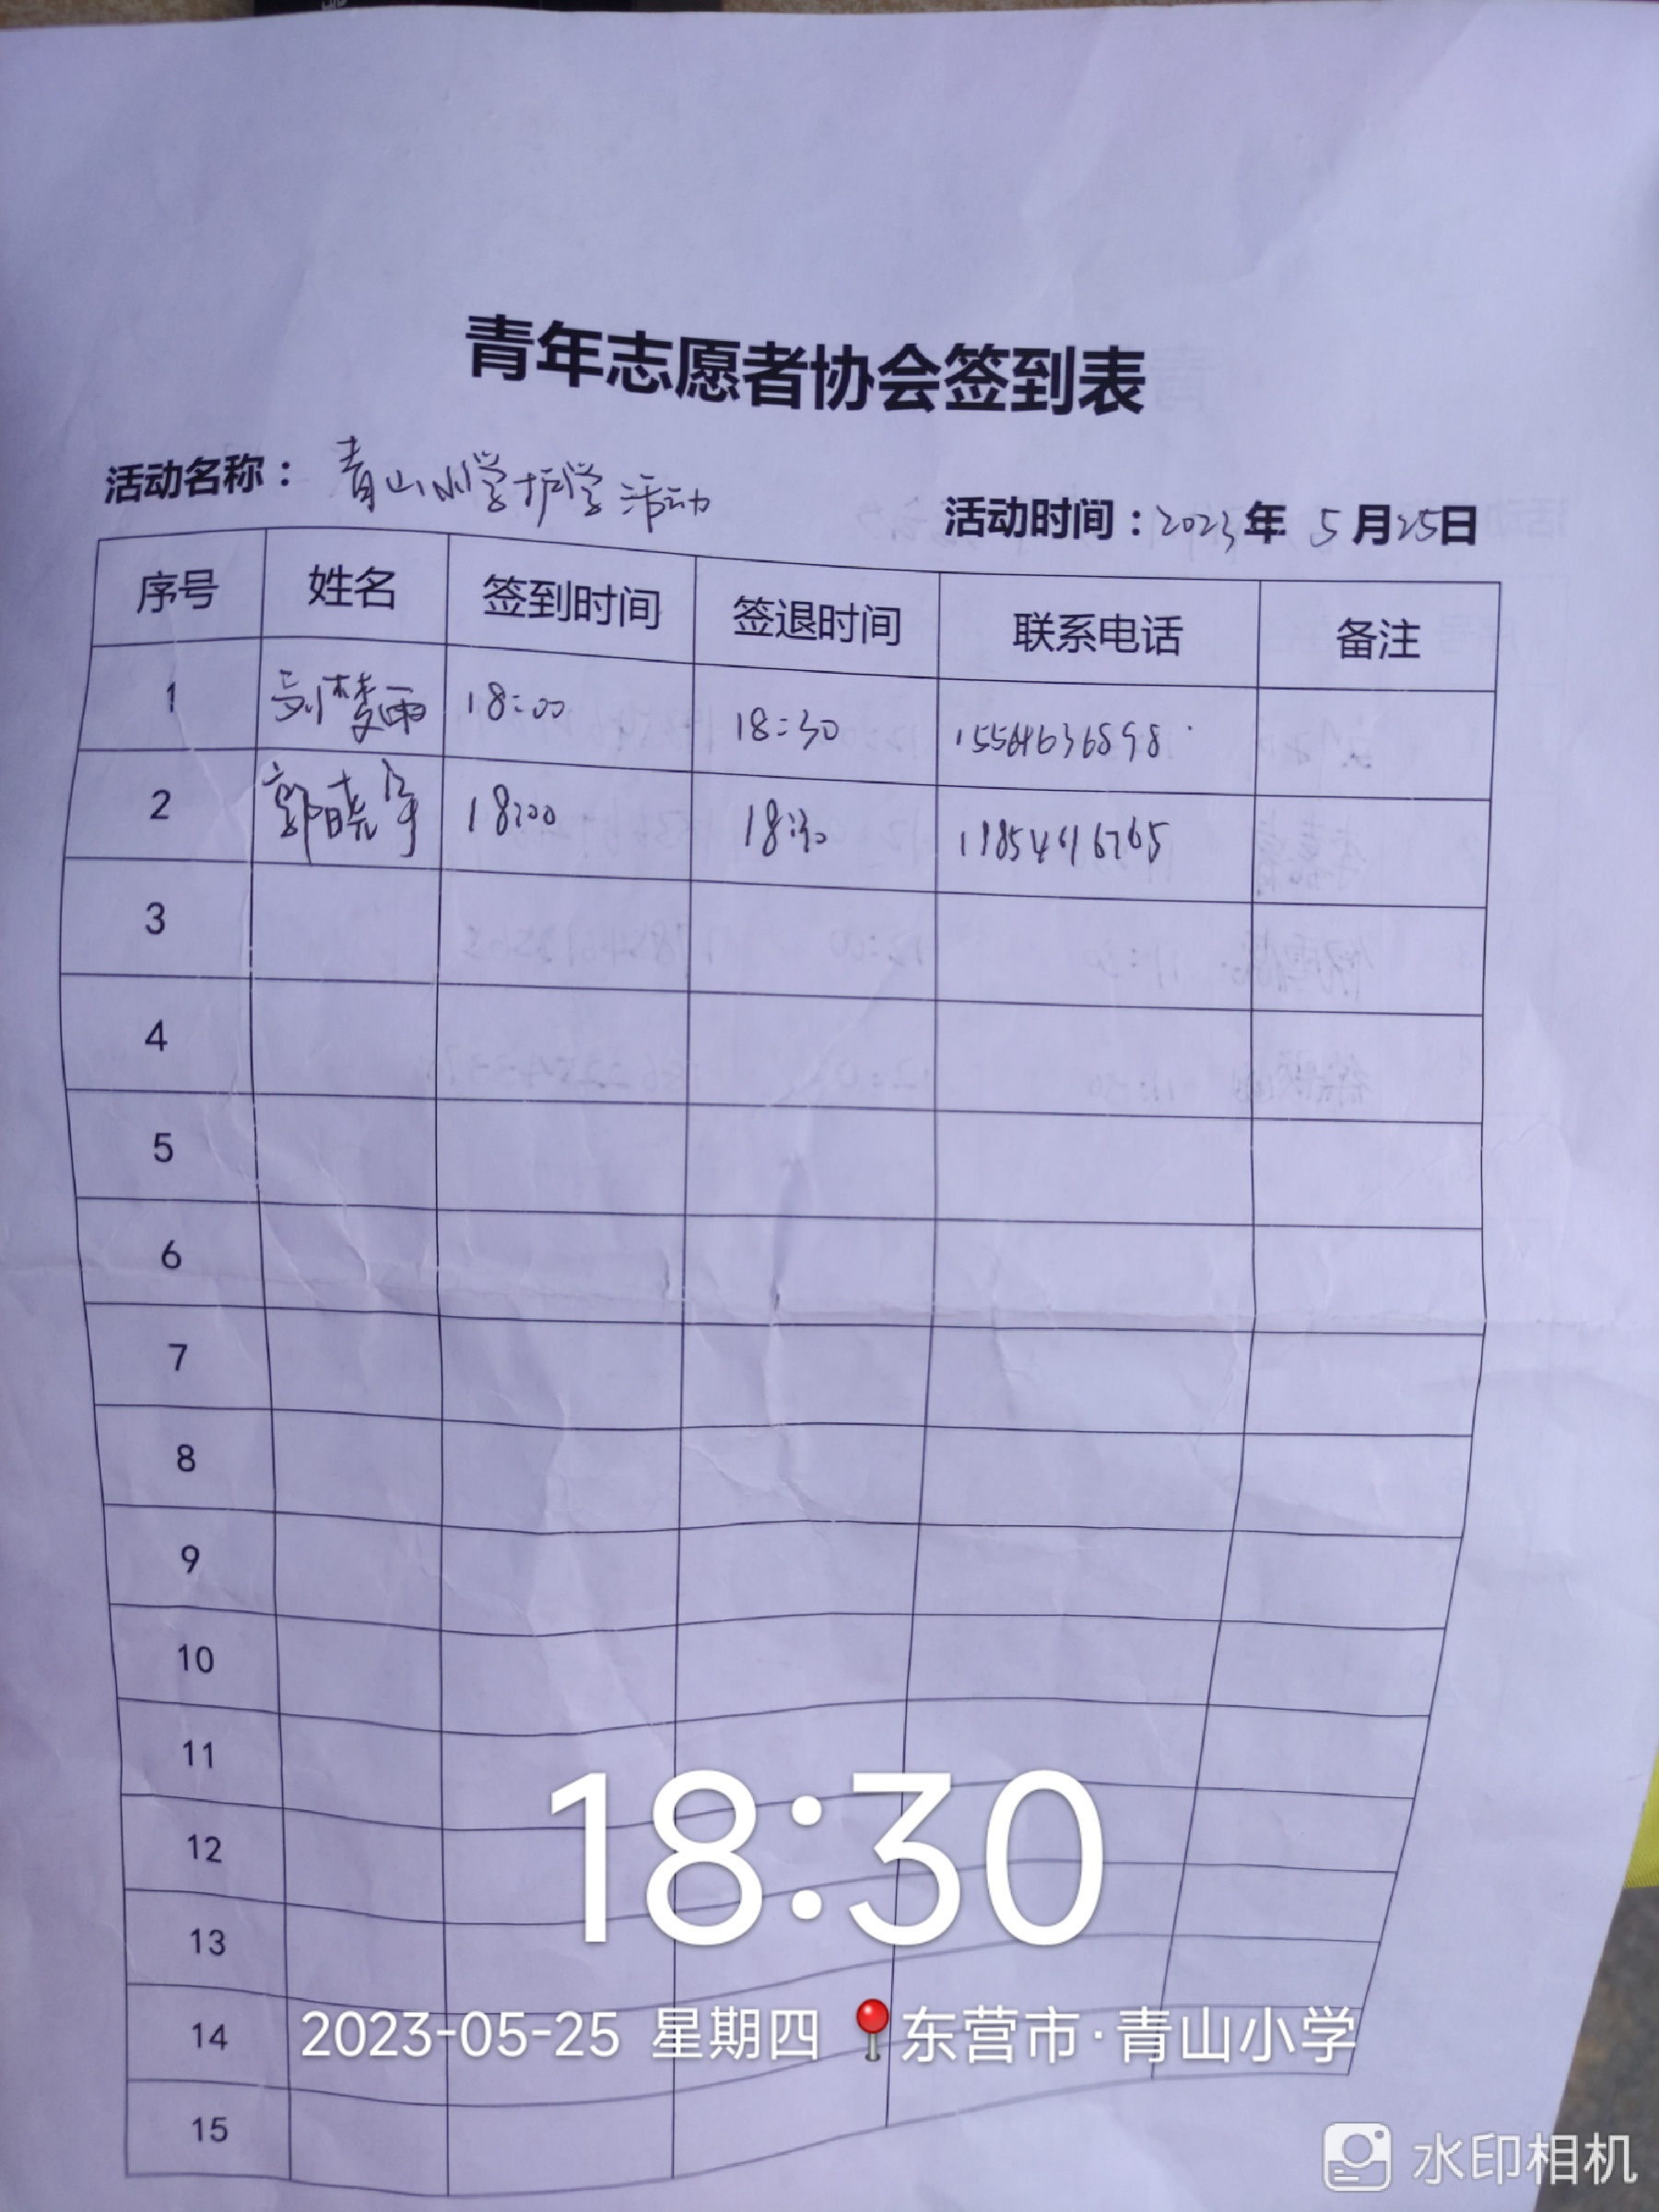 青年志愿者协会签到表
活动名称：青山小学护学活动
活动时间：2023年5月25日
序号 姓名 签到时间 签退时间 联系电话 备注
1 刘梦雨 18:00 18:30 15564636898
2 郭晓 18:00 18:30
3
4
5
6
7
8
9
10
11
12
13
14
15
18:30
2023-05-25 星期四 东营市·青山小学
水印相机